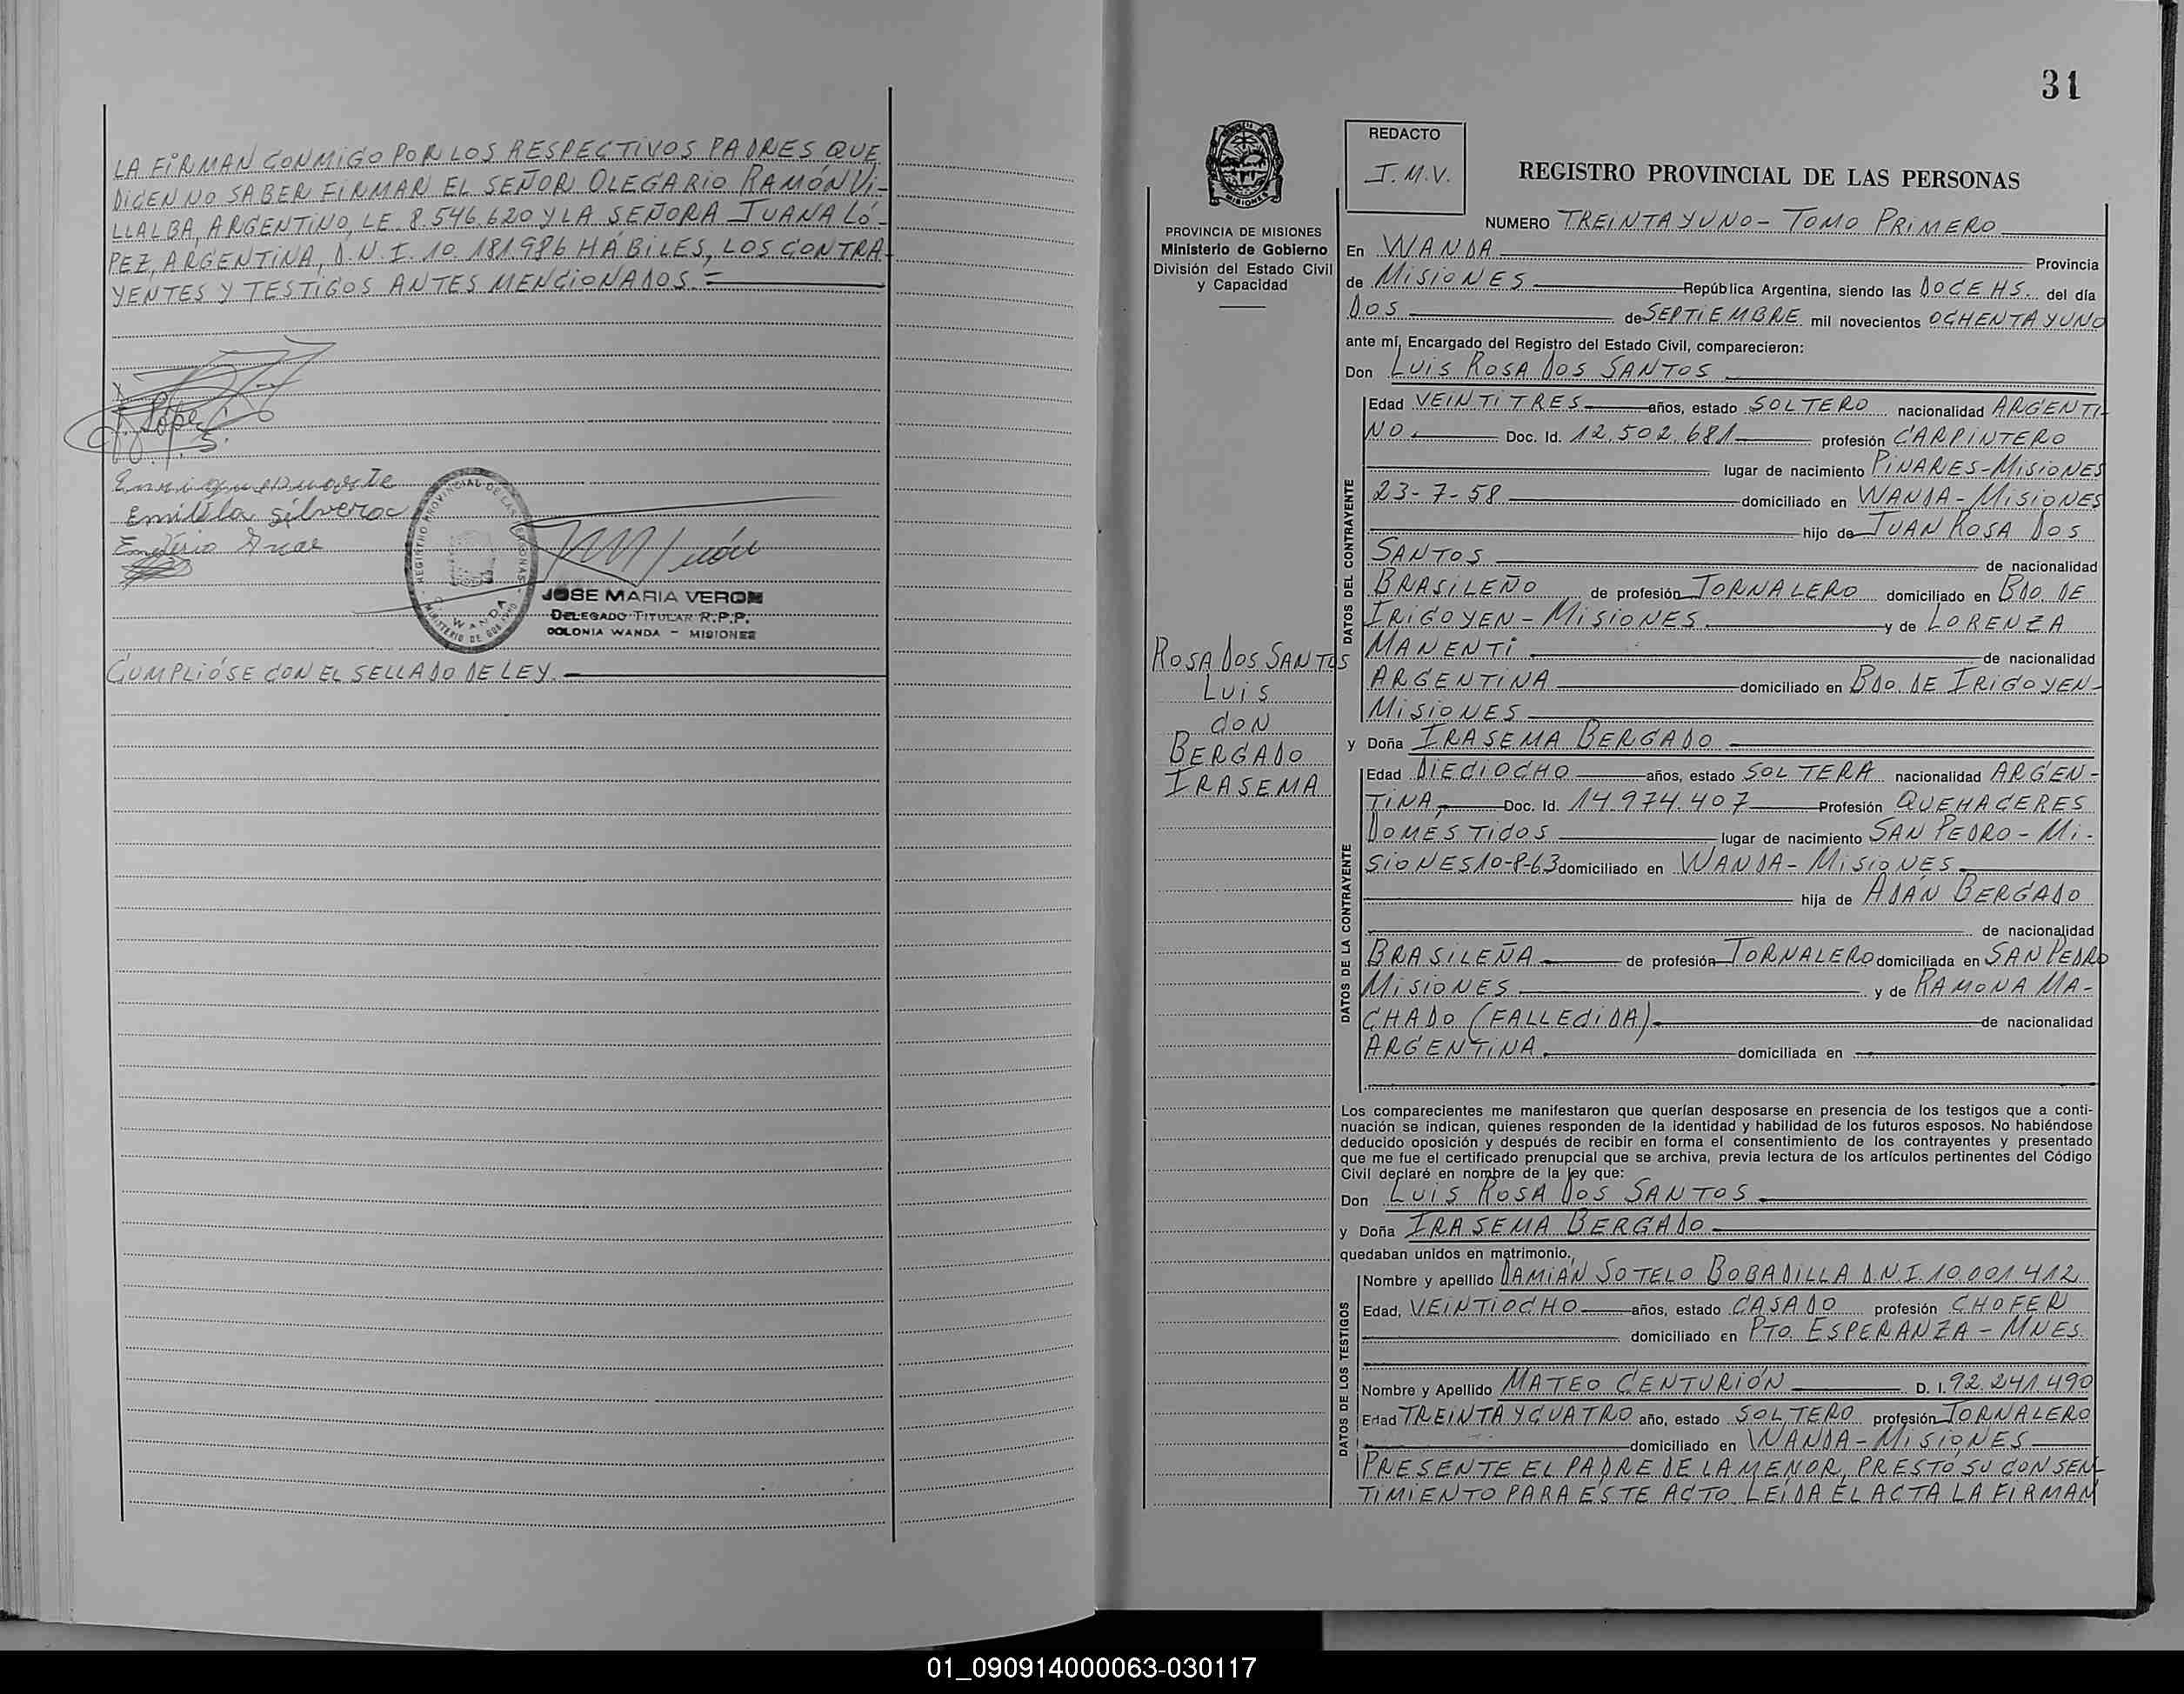 LA FIRMAN CONMIGO POR LOS RESPECTIVOS PADRES QUE
DICEN NO SABER FIRMAR EL SEÑOR OLEGARIO RAMÓN VI-
LLALBA, ARGENTINO, LE. 8.546.620 Y LA SEÑORA JUANA LÓ-
PEZ, ARGENTINA, D.N.I. 10.181.986 HÁBILES, LOS CONTRA-
YENTES Y TESTIGOS ANTES MENCIONADOS.=
J. López
Emilila Silvera
REGISTRO PROVINCIAL DE LAS PERSONAS
WANDA
MINISTERIO DE GOBIERNO
JOSE MARIA VERON
DELEGADO TITULAR R.P.P.
COLONIA WANDA - MISIONES
CUMPLIÓSE CON EL SELLADO DE LEY.
31
MISIONES
PROVINCIA DE MISIONES
Ministerio de Gobierno
División del Estado Civil
y Capacidad
ROSA DOS SANTOS
LUIS
CON
BERGADO
IRASEMA
REDACTO
I.M.V.
REGISTRO PROVINCIAL DE LAS PERSONAS
NUMERO TREINTA Y UNO - TOMO PRIMERO
En WANDA Provincia
de MISIONES República Argentina, siendo las DOCE HS. del día
DOS de SEPTIEMBRE mil novecientos OCHENTA Y UNO
ante mí, Encargado del Registro del Estado Civil, comparecieron:
Don LUIS ROSA DOS SANTOS
DATOS DEL CONTRAYENTE
Edad VEINTITRES años, estado SOLTERO nacionalidad ARGENTI-
NO. Doc. Id. 12.502.681 profesión CARPINTERO
lugar de nacimiento PINARES-MISIONES
23-7-58 domiciliado en WANDA-MISIONES
hijo de JUAN ROSA DOS
SANTOS de nacionalidad
BRASILEÑO de profesión JORNALERO domiciliado en BDO. DE
IRIGOYEN-MISIONES. y de LORENZA
MANENTI de nacionalidad
ARGENTINA domiciliado en BDO. DE IRIGOYEN-
MISIONES
y Doña IRASEMA BERGADO
DATOS DE LA CONTRAYENTE
Edad DIECIOCHO años, estado SOLTERA nacionalidad ARGEN-
TINA, Doc. Id. 14.974.407 Profesión QUEHACERES
DOMÉSTICOS lugar de nacimiento SAN PEDRO-MI-
SIONES 10-8-63 domiciliado en WANDA-MISIONES
hija de ADÁN BERGADO
de nacionalidad
BRASILEÑA de profesión JORNALERO domiciliada en SAN PEDRO
MISIONES y de RAMONA MA-
CHADO (FALLECIDA) de nacionalidad
ARGENTINA. domiciliada en
Los comparecientes me manifestaron que querían desposarse en presencia de los testigos que a conti-
nuación se indican, quienes responden de la identidad y habilidad de los futuros esposos. No habiéndose
deducido oposición y después de recibir en forma el consentimiento de los contrayentes y presentado
que me fue el certificado prenupcial que se archiva, previa lectura de los artículos pertinentes del Código
Civil declaré en nombre de la ley que:
Don LUIS ROSA DOS SANTOS
y Doña IRASEMA BERGADO
quedaban unidos en matrimonio.
DATOS DE LOS TESTIGOS
Nombre y apellido DAMIÁN SOTELO BOBADILLA D.N.I. 10.001.412
Edad, VEINTIOCHO años, estado CASADO profesión CHOFER
domiciliado en PTO. ESPERANZA-MNES.
Nombre y Apellido MATEO CENTURIÓN D. I. 92.241.490
Edad TREINTA Y CUATRO año, estado SOLTERO profesión JORNALERO
domiciliado en WANDA-MISIONES
PRESENTE EL PADRE DE LA MENOR, PRESTÓ SU CONSEN-
TIMIENTO PARA ESTE ACTO. LEÍDA EL ACTA LA FIRMAN
01_090914000063-030117